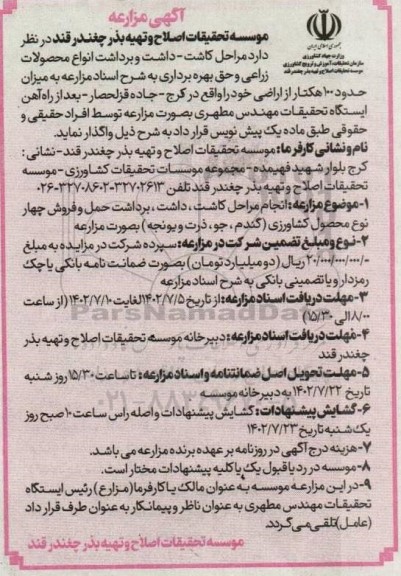 آگهی مزارعه
جمهوری اسلامی ایران
وزارت جهاد کشاورزی
سازمان تحقیقات، آموزش و ترویج کشاورزی
موسسه تحقیقات اصلاح و تهیه بذر چغندر قند
موسسه تحقیقات اصلاح و تهیه بذر چغندر قند در نظر
دارد مراحل کاشت - داشت و برداشت انواع محصولات
زراعی و حق بهره برداری به شرح اسناد مزارعه به میزان
حدود ۱۰۰ هکتار از اراضی خود را واقع در کرج - جاده قزلحصار - بعد از راه آهن
ایستگاه تحقیقات مهندس مطهری بصورت مزارعه توسط افراد حقیقی و
حقوقی طبق ماده یک پیش نویس قرار داد به شرح ذیل واگذار نماید.
نام و نشانی کارفرما: موسسه تحقیقات اصلاح و تهیه بذر چغندر قند - نشانی:
کرج بلوار شهید فهمیده - مجموعه موسسات تحقیقات کشاورزی - موسسه
تحقیقات اصلاح و تهیه بذر چغندر قند تلفن ۳۲۷۰۲۶۱۳-۳۲۷۰۸۶۰۲-۰۲۶
۱- موضوع مزارعه: انجام مراحل کاشت، داشت، برداشت حمل و فروش چهار
نوع محصول کشاورزی (گندم، جو، ذرت و یونجه) بصورت مزارعه
۲- نوع و مبلغ تضمین شرکت در مزارعه: سپرده شرکت در مزایده به مبلغ
۲۰/۰۰۰/۰۰۰/۰۰۰/- ریال (دو میلیارد تومان) بصورت ضمانت نامه بانکی یا چک
رمزدار و یا تضمینی بانکی به شرح اسناد مزارعه
۳- مهلت دریافت اسناد مزارعه: از تاریخ ۱۴۰۲/۷/۵ لغایت ۱۴۰۲/۷/۱۰ (از ساعت
۸/۰۰ الی ۱۵/۳۰)
۴- مهلت دریافت اسناد مزارعه: دبیرخانه موسسه تحقیقات اصلاح و تهیه بذر
چغندر قند
۵- مهلت تحویل اصل ضمانتنامه و اسناد مزارعه: تا ساعت ۱۵/۳۰ روز شنبه
تاریخ ۱۴۰۲/۷/۲۲ به دبیرخانه موسسه
۶- گشایش پیشنهادات: گشایش پیشنهادات و اصله راس ساعت ۱۰ صبح روز
یک شنبه تاریخ ۱۴۰۲/۷/۲۳
۷- هزینه درج آگهی در روزنامه بر عهده برنده مزارعه می باشد.
۸- موسسه در رد یا قبول یک یا کلیه پیشنهادات مختار است.
۹- در این مزارعه موسسه به عنوان مالک یا کارفرما (مزارع) رئیس ایستگاه
تحقیقات مهندس مطهری به عنوان ناظر و پیمانکار به عنوان طرف قرار داد
(عامل) تلقی می گردد.
موسسه تحقیقات اصلاح و تهیه بذر چغندر قند